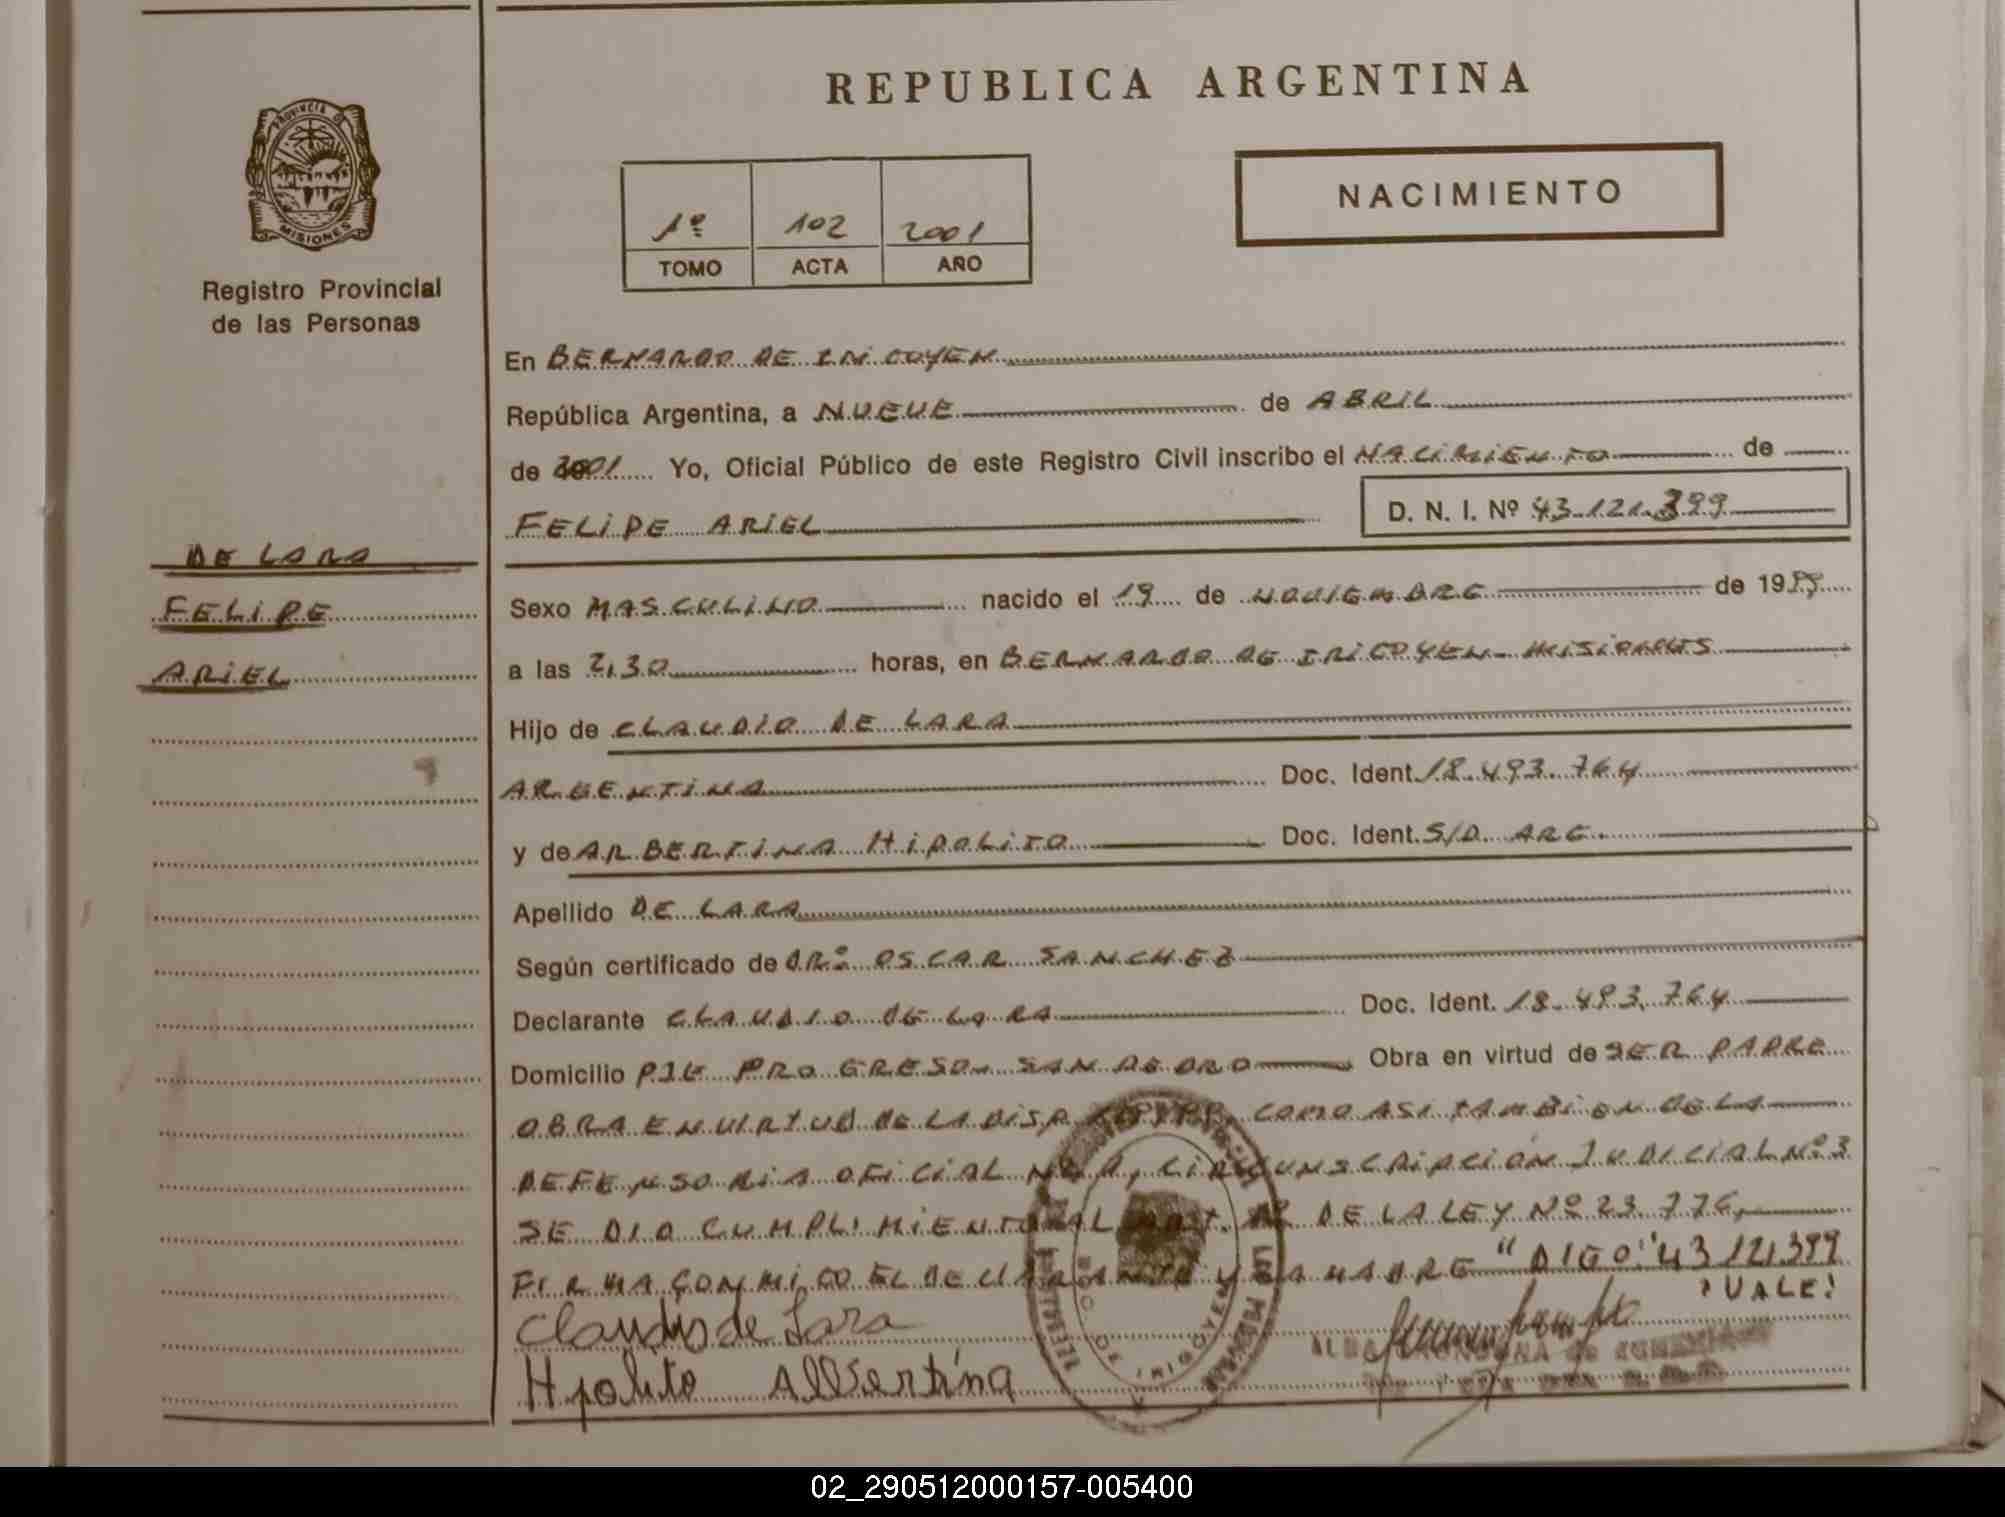 REPUBLICA ARGENTINA
PROVINCIA DE
MISIONES
Registro Provincial
de las Personas
1º 102 2001
TOMO ACTA AÑO
NACIMIENTO
En BERNARDO DE IRIGOYEN
República Argentina, a NUEVE de ABRIL
de 2001 Yo, Oficial Público de este Registro Civil inscribo el NACIMIENTO de
FELIPE ARIEL D. N. I. Nº 43.121.399
DE LARA
FELIPE
ARIEL
Sexo MASCULINO nacido el 19 de NOVIEMBRE de 1999
a las 2,30 horas, en BERNARDO DE IRIGOYEN - MISIONES
Hijo de CLAUDIO DE LARA
ARGENTINA Doc. Ident. 18.493.764
y de ARBERTINA HIPOLITO Doc. Ident. S/D ARG.
Apellido DE LARA
Según certificado de DRº OSCAR SANCHEZ
Declarante CLAUDIO DE LARA Doc. Ident. 18.493.764
Domicilio PJE PROGRESO - SAN PEDRO Obra en virtud de SER PADRE
OBRA EN VIRTUD DE LA DISP. COMO ASI TAMBIEN DE LA
DEFENSORIA OFICIAL CIRCUNSCRIPCION JUDICIAL Nº 3
SE DIO CUMPLIMIENTO AL DE LA LEY Nº 23.776,
FIRMA CONMIGO EL DECLARANTE Y LA MADRE "DIGO" 43 121.399
¡VALE!
Claudio de Lara
Hipolito Albertina
BDO. DE IRIGOYEN
02_290512000157-005400